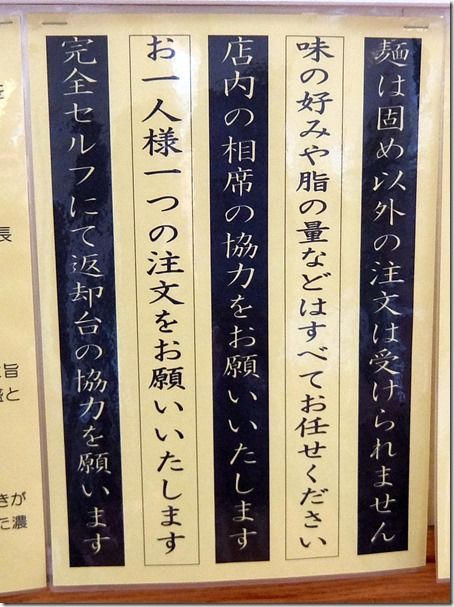 麺は固め以外の注文は受けられません
味の好みや脂の量などはすべてお任せください
店内の相席の協力をお願いいたします
お一人様一つの注文をお願いいたします
完全セルフにて返却台の協力を願います
を
長
旨
と
きが
た濃